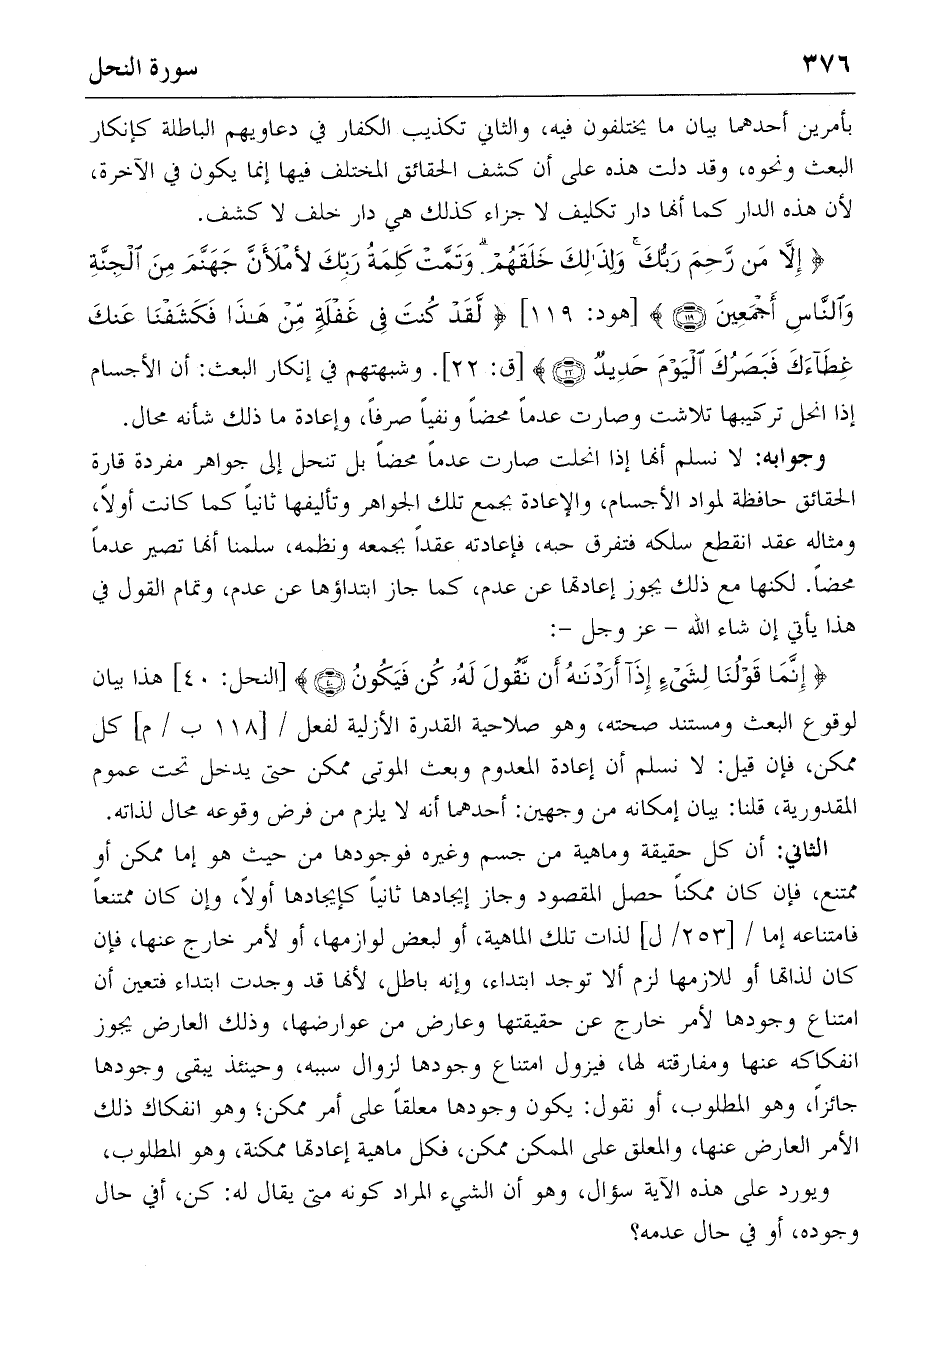 ٣٧٦ سورة النحل
بأمرين أحدهما بيان ما يختلفون فيه، والثاني تكذيب الكفار في دعاويهم الباطلة كإنكار
البعث ونحوه، وقد دلت هذه على أن كشف الحقائق المختلف فيها إنما يكون في الآخرة،
لأن هذه الدار كما أنها دار تكليف لا جزاء كذلك هي دار خلف لا كشف.
﴿ إِلَّا مَن رَّحِمَ رَبُّكَ ۚ وَلِذَٰلِكَ خَلَقَهُمْ ۗ وَتَمَّتْ كَلِمَةُ رَبِّكَ لَأَمْلَأَنَّ جَهَنَّمَ مِنَ ٱلْجِنَّةِ
وَٱلنَّاسِ أَجْمَعِينَ ١١٩ ﴾ [هود: ١١٩] ﴿ لَّقَدْ كُنتَ فِى غَفْلَةٍ مِّنْ هَـٰذَا فَكَشَفْنَا عَنكَ
غِطَآءَكَ فَبَصَرُكَ ٱلْيَوْمَ حَدِيدٌ ٢٢ ﴾ [ق: ٢٢]. وشبهتهم في إنكار البعث: أن الأجسام
إذا انحل تركيبها تلاشت وصارت عدماً محضاً ونفياً صرفاً، وإعادة ما ذلك شأنه محال.
وجوابه: لا نسلم أنها إذا انحلت صارت عدماً محضاً بل تنحل إلى جواهر مفردة قارة
الحقائق حافظة لمواد الأجسام، والإعادة بجمع تلك الجواهر وتأليفها ثانياً كما كانت أولاً،
ومثاله عقد انقطع سلكه فتفرق حبه، فإعادته عقداً بجمعه ونظمه، سلمنا أنها تصير عدماً
محضاً. لكنها مع ذلك يجوز إعادتها عن عدم، كما جاز ابتداؤها عن عدم، وتمام القول في
هذا يأتي إن شاء الله – عز وجل –:
﴿ إِنَّمَا قَوْلُنَا لِشَىْءٍ إِذَآ أَرَدْنَـٰهُ أَن نَّقُولَ لَهُۥ كُن فَيَكُونُ ٤٠ ﴾ [النحل: ٤٠] هذا بيان
لوقوع البعث ومستند صحته، وهو صلاحية القدرة الأزلية لفعل / [١١٨ ب / م] كل
ممكن، فإن قيل: لا نسلم أن إعادة المعدوم وبعث الموتى ممكن حتى يدخل تحت عموم
المقدورية، قلنا: بيان إمكانه من وجهين: أحدهما أنه لا يلزم من فرض وقوعه محال لذاته.
الثاني: أن كل حقيقة وماهية من جسم وغيره فوجودها من حيث هو إما ممكن أو
ممتنع، فإن كان ممكناً حصل المقصود وجاز إيجادها ثانياً كإيجادها أولاً، وإن كان ممتنعاً
فامتناعه إما / [٢٥٣/ ل] لذات تلك الماهية، أو لبعض لوازمها، أو لأمر خارج عنها، فإن
كان لذاتها أو للازمها لزم ألا توجد ابتداء، وإنه باطل، لأنها قد وجدت ابتداء فتعين أن
امتناع وجودها لأمر خارج عن حقيقتها وعارض من عوارضها، وذلك العارض يجوز
انفكاكه عنها ومفارقته لها، فيزول امتناع وجودها لزوال سببه، وحينئذ يبقى وجودها
جائزاً، وهو المطلوب، أو نقول: يكون وجودها معلقاً على أمر ممكن؛ وهو انفكاك ذلك
الأمر العارض عنها، والمعلق على الممكن ممكن، فكل ماهية إعادتها ممكنة، وهو المطلوب،
ويورد على هذه الآية سؤال، وهو أن الشيء المراد كونه متى يقال له: كن، أفي حال
وجوده، أو في حال عدمه؟